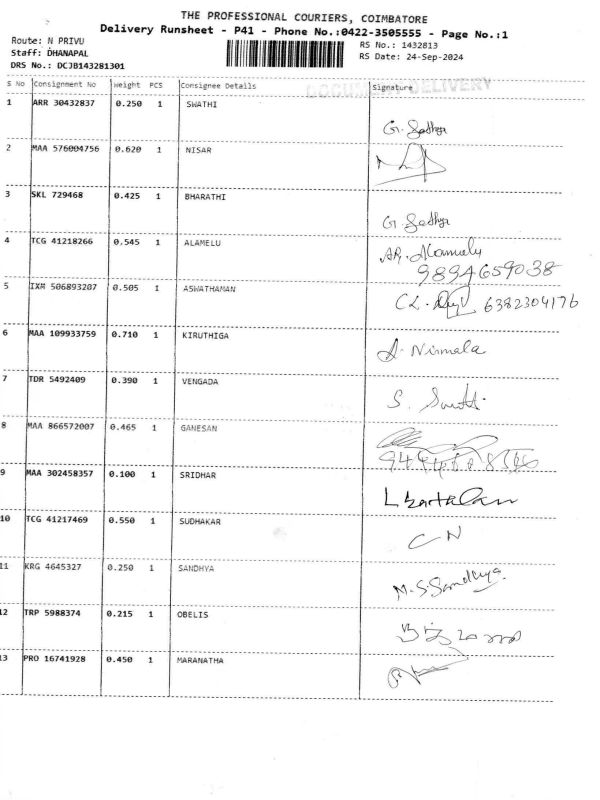 THE PROFESSIONAL COURIERS, COIMBATORE
Delivery Runsheet - P41 - Phone No.:0422-3505555 - Page No.:1
Route: N PRIVU
RS No.: 1432813
Staff: DHANAPAL
RS Date: 24-Sep-2024
DRS No.: DCJB143281301
S No Consignment No Weight PCS Consignee Details Signature
DOCUMENT DELIVERY
1 ARR 30432837 0.250 1 SWATHI G. Sathya
2 MAA 576004756 0.620 1 NISAR
3 SKL 729468 0.425 1 BHARATHI G. Sathya
4 TCG 41218266 0.545 1 ALAMELU AR. Alamelu
9894659038
5 IXM 506893207 0.505 1 ASWATHAMAN CL. 6382304176
6 MAA 109933759 0.710 1 KIRUTHIGA A. Nirmala
7 TDR 5492409 0.390 1 VENGADA S.
8 MAA 866572007 0.465 1 GANESAN
9 MAA 302458357 0.100 1 SRIDHAR
10 TCG 41217469 0.550 1 SUDHAKAR C N
11 KRG 4645327 0.250 1 SANDHYA M.S.Sandhya.
12 TRP 5988374 0.215 1 OBELIS
13 PRO 16741928 0.450 1 MARANATHA